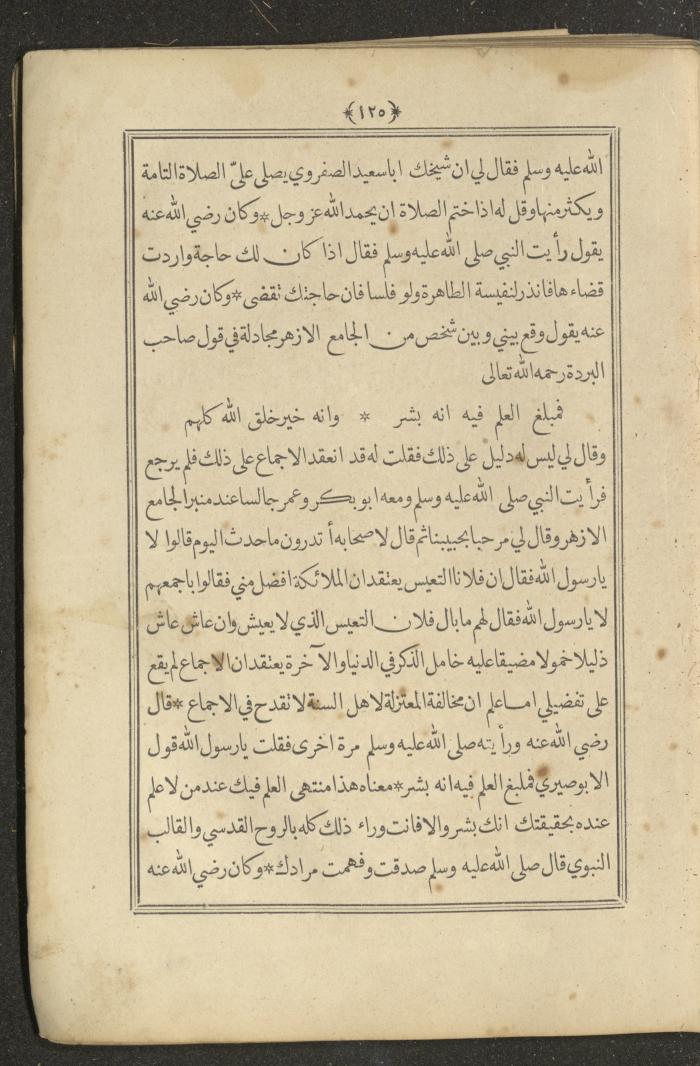 ﴿١٢٥﴾
الله عليه وسلم فقال لي ان شيخك اباسعيد الصفروي يصلى علىّ الصلاة التامة
ويكثر منها وقل له اذا ختم الصلاة ان يحمد الله عز وجل * وكان رضي الله عنه
يقول رأيت النبي صلى الله عليه وسلم فقال اذا كان لك حاجة واردت
قضاءها فانذر لنفيسة الطاهرة ولو فلسا فان حاجتك تقضى * وكان رضي الله
عنه يقول وقع بيني وبين شخص من الجامع الازهر مجادلة في قول صاحب
البردة رحمه الله تعالى
فمبلغ العلم فيه انه بشر * وانه خير خلق الله كلهم
وقال لي ليس له دليل على ذلك فقلت له قد انعقد الاجماع على ذلك فلم يرجع
فرأيت النبي صلى الله عليه وسلم ومعه ابو بكر وعمر جالسا عند منبر الجامع
الازهر وقال لي مرحبا بحبيبنا ثم قال لاصحابه أتدرون ما حدث اليوم قالوا لا
يارسول الله فقال ان فلانا التعيس يعتقد ان الملائكة افضل مني فقالوا باجمعهم
لا يارسول الله فقال لهم ما بال فلان التعيس الذي لا يعيش وان عاش عاش
ذليلا خمولا مضيقا عليه خامل الذكر في الدنيا والآخرة يعتقد ان الاجماع لم يقع
على تفضيلي اما علم ان مخالفة المعتزلة لاهل السنة لا تقدح في الاجماع * قال
رضي الله عنه ورأيته صلى الله عليه وسلم مرة اخرى فقلت يارسول الله قول
الابوصيري فمبلغ العلم فيه انه بشر * معناه هذا منتهى العلم فيك عند من لا علم
عنده بحقيقتك انك بشر والا فانت وراء ذلك كله بالروح القدسي والقالب
النبوي قال صلى الله عليه وسلم صدقت وفهمت مرادك * وكان رضي الله عنه